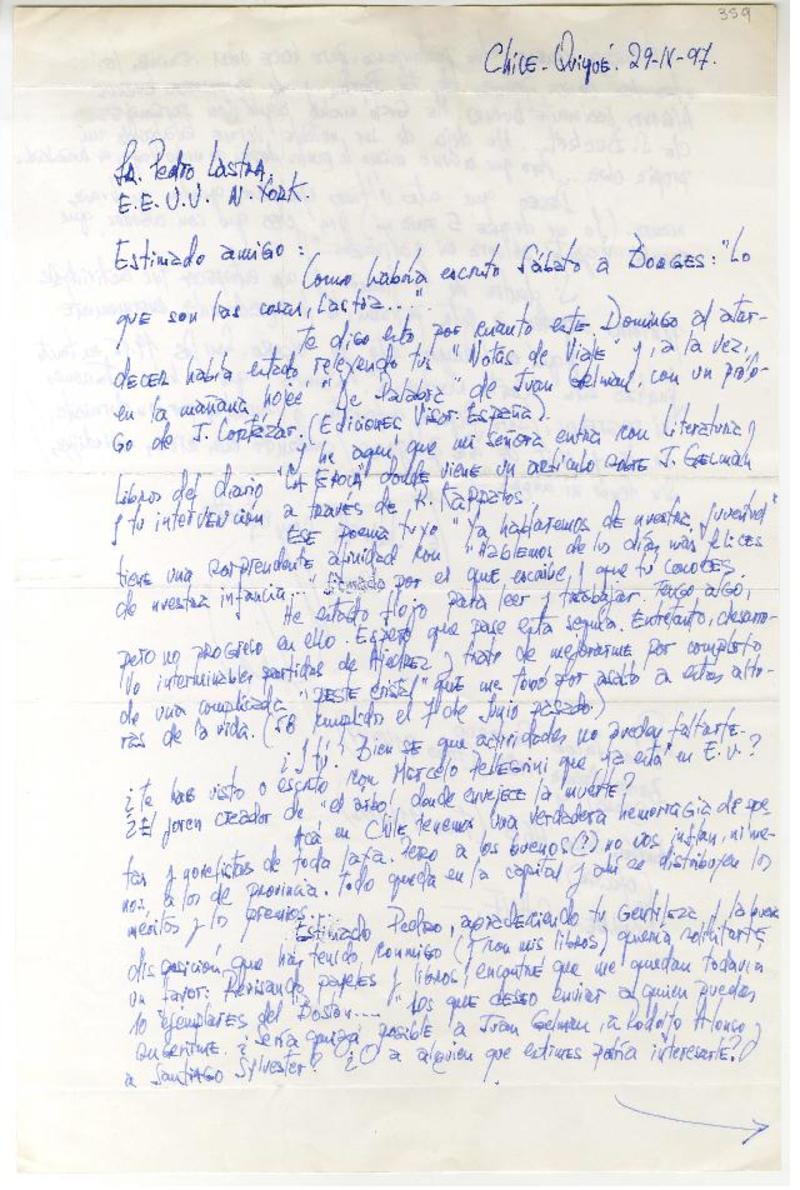 359
Chile-Quiqué. 29-IX-97.
Sr. Pedro Lastra,
E.E.U.U. N. York.
Estimado amigo:
Como habría escrito Sábato a Borges: "Lo
que son las cosas, Lastra...".
Te digo esto por cuanto este Domingo al atar-
decer había estado releyendo tus "Notas de Viaje" y, a la vez,
en la mañana, hojeé "De Palabra" de Juan Gelman, con un prólo-
go de J. Cortázar. (Ediciones Visor. España).
Y he aquí que mi señora entra con Literatura y
Libros del diario "La Epoca" donde viene un artículo sobre J. Gelman
y tu intervención a través de R. Karpatos.
Ese poema tuyo "Ya hablaremos de nuestra juventud"
tiene una sorprendente afinidad con "Hablemos de los días más felices
de nuestra infancia..." firmado por el que escribe y que tú conoces.
He estado flojo para leer y trabajar. Tengo algo,
pero no progreso en ello. Espero que pase esta sequía. Entretanto, desarro-
llo interminables partidas de Ajedrez y trato de mejorarme por completo
de una complicada "peste cristal" que me tomó por asalto a estas altu-
ras de la vida. (58 cumplidos el 7 de Junio pasado.)
¿Y tú? Bien sé que actividades no pueden faltarte.
¿Te has visto o escrito con Marcelo Pellegrini que ya está en E.U.?
¿El joven creador de "el árbol donde envejece la muerte?
Acá en Chile tenemos una verdadera hemorragia de poe-
tas y novelistas de toda laya. Pero a los buenos(?) no nos inflan, ni me-
nos, a los de provincia. Todo queda en la capital y ahí se distribuyen los
méritos y los premios.
Estimado Pedro, agradeciendo tu gentileza y la buena
disposición que has tenido conmigo (y con mis libros) quería solicitarte
un favor: Revisando papeles y libros, encontré que me quedan todavía
10 ejemplares del Boston.... " los que deseo enviar a quien puedas
sugerirme. ¿Sería quizá posible a Juan Gelman, a Rodolfo Alonso y
a Santiago Sylvester? ¿O a alguien que estimes podría interesarle?